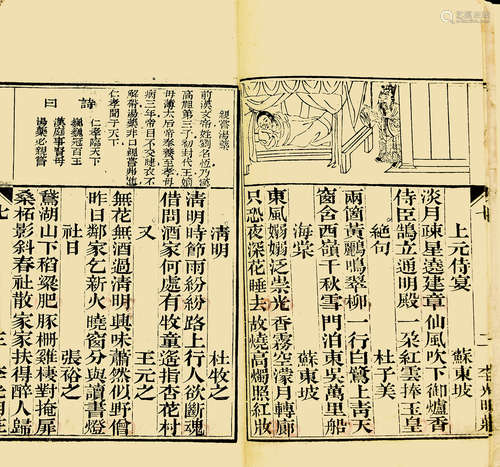 上元侍宴 蘇東坡
淡月疎星遶建章仙風吹下御爐香
侍臣鵠立通明殿一朶紅雲捧玉皇
絶句 杜子美
兩箇黃鸝鳴翠柳一行白鷺上青天
窗含西嶺千秋雪門泊東吳萬里船
海棠 蘇東坡
東風嫋嫋泛崇光香霧空濛月轉廊
只恐夜深花睡去故燒高燭照紅妝
親嘗湯藥
前漢文帝姓劉名恆乃漢
高祖第三子初封代王
母薄太后帝奉養至孝母
病三年帝目不交睫衣不
解帶湯藥非口親嘗
仁孝聞于天下
詩曰
仁孝臨天下
巍巍冠百王
漢庭事賢母
湯藥必親嘗
清明 杜牧之
清明時節雨紛紛路上行人欲斷魂
借問酒家何處有牧童遙指杏花村
又 王元之
無花無酒過清明興味蕭然似野僧
昨日鄰家乞新火曉窗分與讀書燈
社日 張裕之
鵞湖山下稻粱肥豚柵雞棲對掩扉
桑柘影斜春社散家家扶得醉人歸